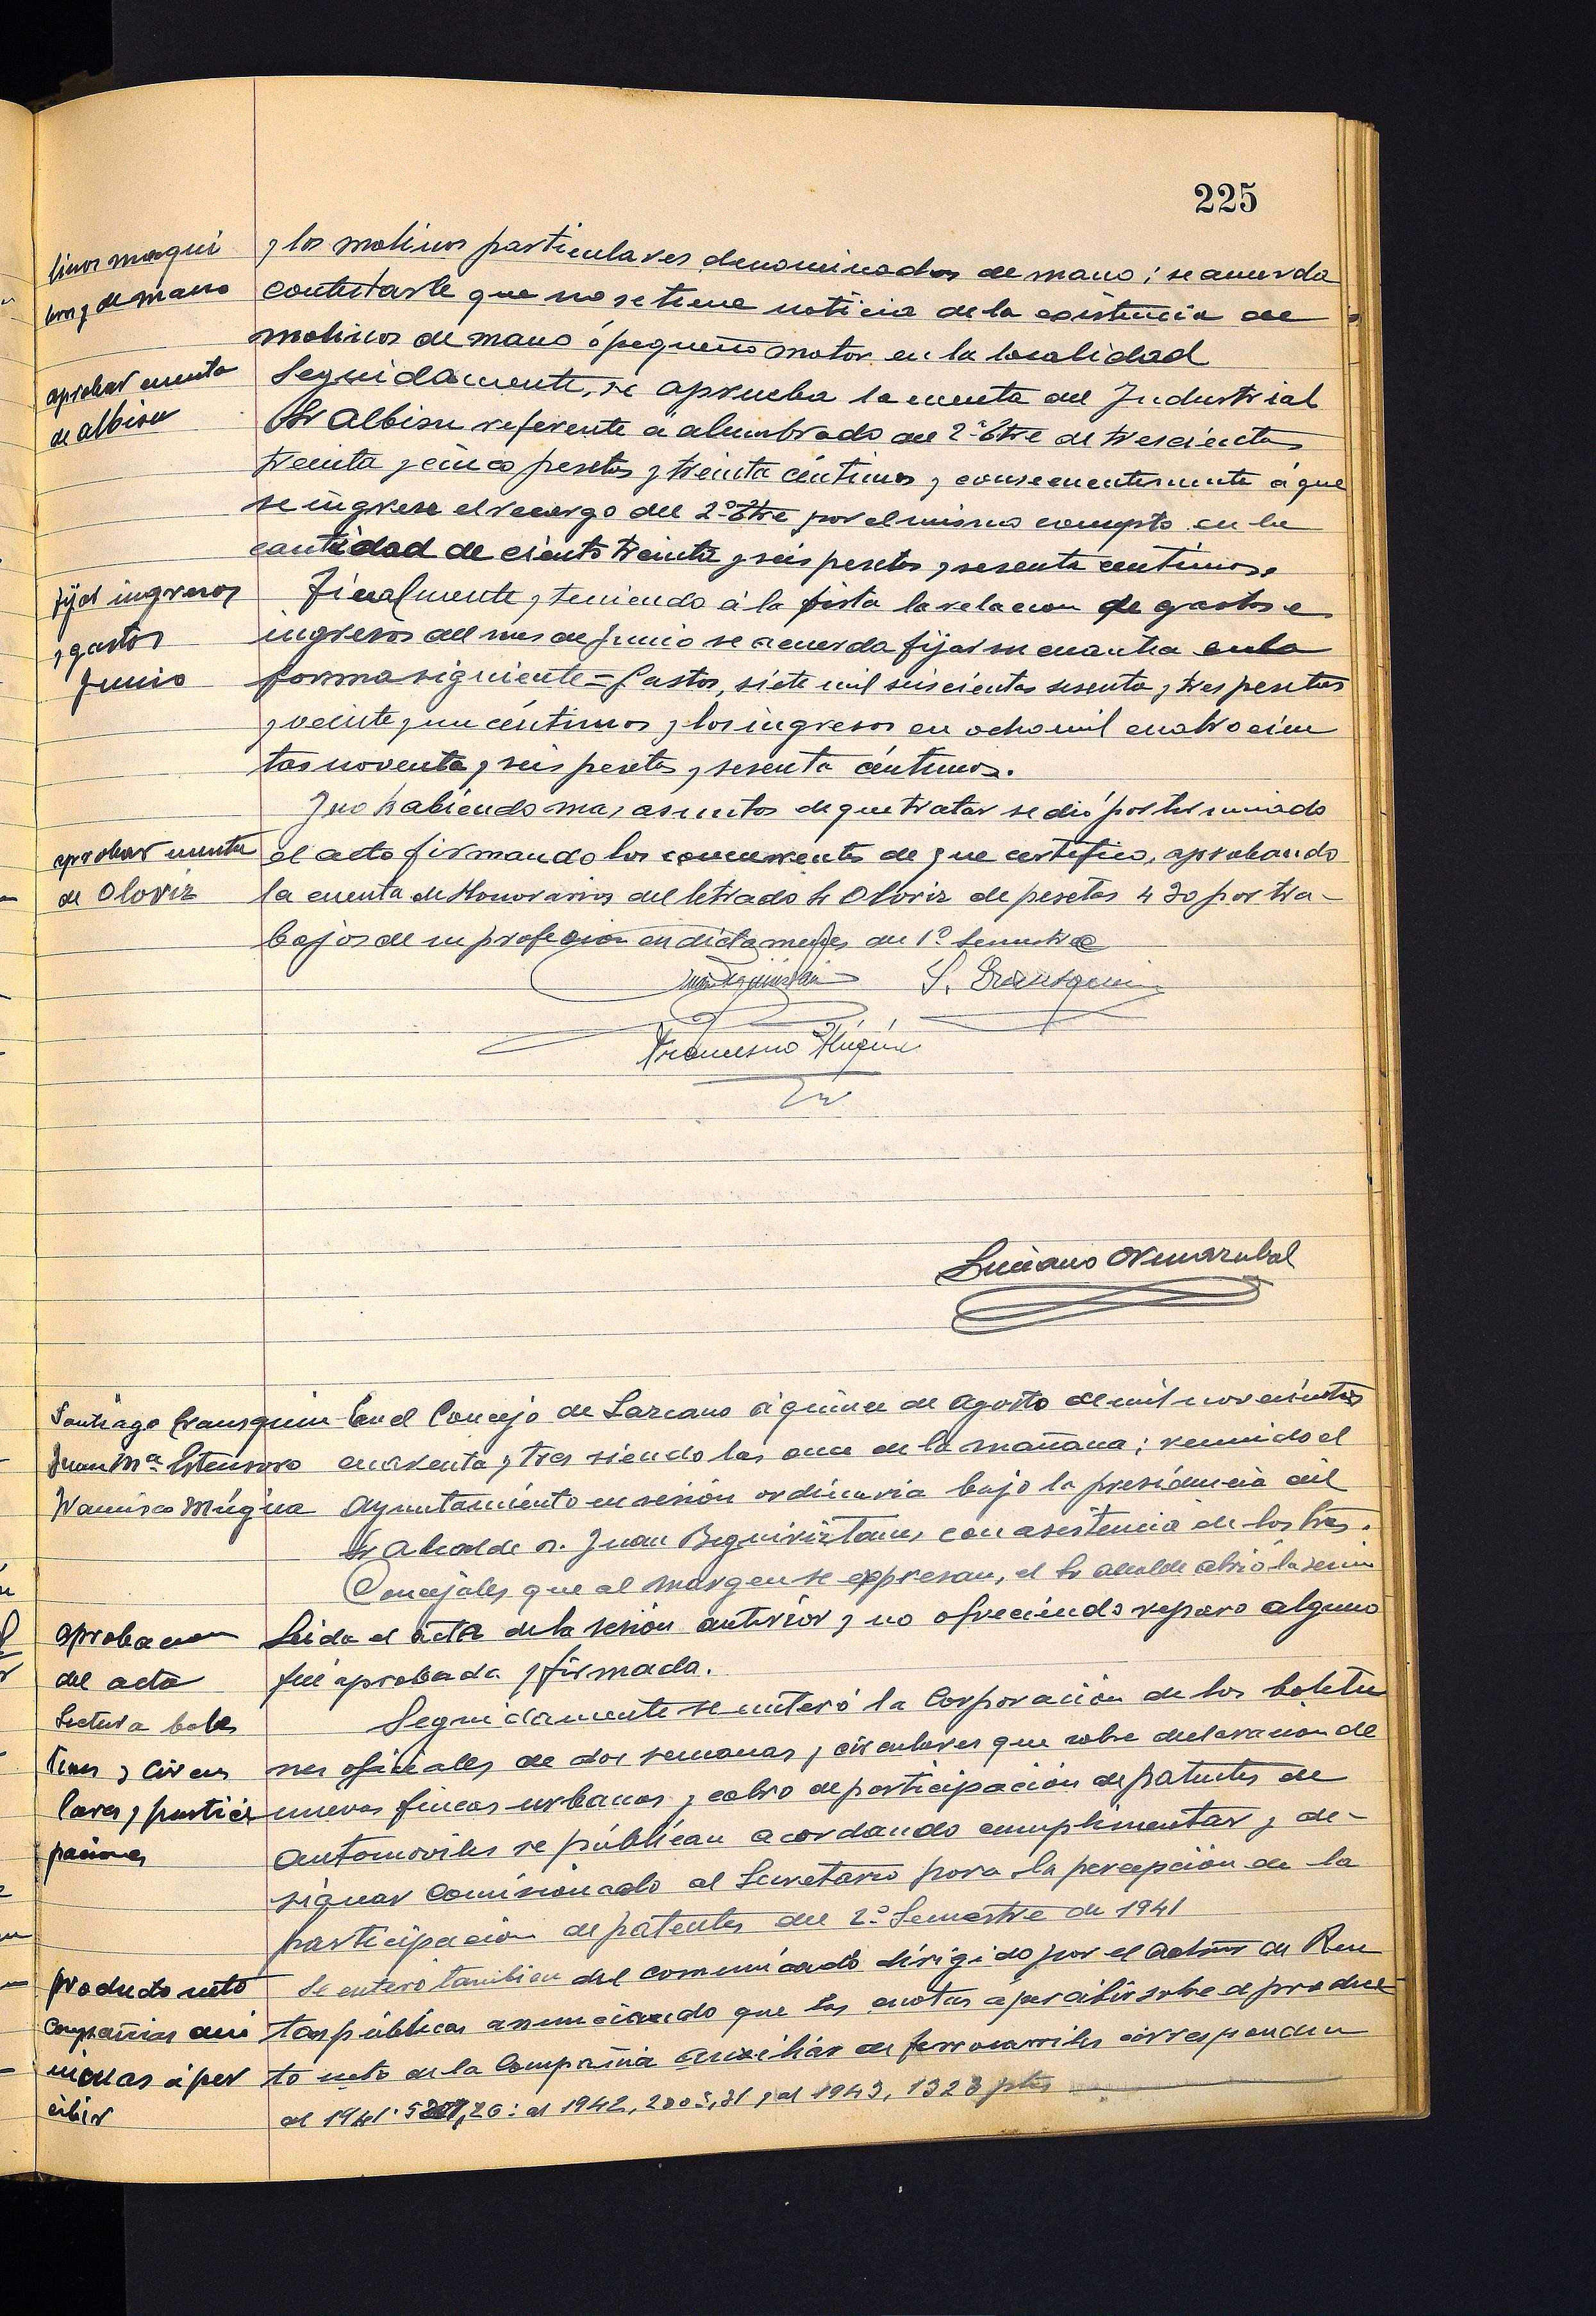 225
linos maqui
leros y de mano
y los molinos particulares denominados de mano; se acuerda
contestarle que no se tiene noticia de la existencia de
molinos de mano ó pequeño motor en la localidad
aprobar cuenta
de albisu
Seguidamente, se aprueba la cuenta del Industrial
Sr Albisu referente á alumbrado del 2º tre de trescientas
treinta y cinco pesetas y treinta céntimos y consecuentemente á que
se ingrese el recargo del 2º tre por el mismo concepto en la
cantidad de ciento treinta y seis pesetas y sesenta centimos.
fijar ingresos
y gastos
Junio
Finalmente y teniendo á la vista la relacion de gastos e
ingresos del mes de Junio se acuerda fijar su cuantia en la
forma siguiente = Gastos, siete mil seiscientas sesenta y tres pesetas
y veinte y un céntimos y los ingresos en ocho mil cuatrocien
tas noventa y seis pesetas y sesenta céntimos.
Y no habiendo mas asuntos de que tratar se dió por terminado
aprobar cuenta
de Oloriz
el acto firmando los concurrentes de que certifico, aprobando
la cuenta de Honorarios del letrado Sr Oloriz de pesetas 430 por tra-
bajos de su profesion en dictamenes del 1º Semestre
S. Eransquin
Francisco Múgica
Luciano Ormazabal
Santiago Eransquin
Juan Mª Estensoro
Francisco Múgica
En el Concejo de Lazcano á quince de Agosto de mil novecientos
cuarenta y tres siendo las once de la mañana; reunido el
Ayuntamiento en sesión ordinaria bajo la presidencia del
Sr Alcalde D. Juan Beguiristain, con asistencia de los Sres.
Concejales que al margen se expresan, el Sr alcalde abrió la sesión
aprobacion
del acta
Leida el acta de la sesión anterior y no ofreciendo reparo alguno
fué aprobada y firmada.
Lectura bole
tines y circu
lares y partici
paciones
Seguidamente se enteró la Corporacion de los boleti
nes oficiales de dos semanas y circulares que sobre declaracion de
nuevas fincas urbanas y cobro de participación de patentes de
automoviles se públican acordando cumplimentar y de-
signar Comisionado al Secretario para la percepción de la
participacion de patentes del 2º Semestre de 1941
producto neto
Compañias
á per
cibir
Se enteró tambien del comunicado dirigido por el Admor de Ren
tas públicas anunciando que las cuotas á percibir sobre el produc-
to neto de la Compañia auxiliar de ferrocarriles corresponden
al 1942, 2805,31 y al 1943, 1323 ptas